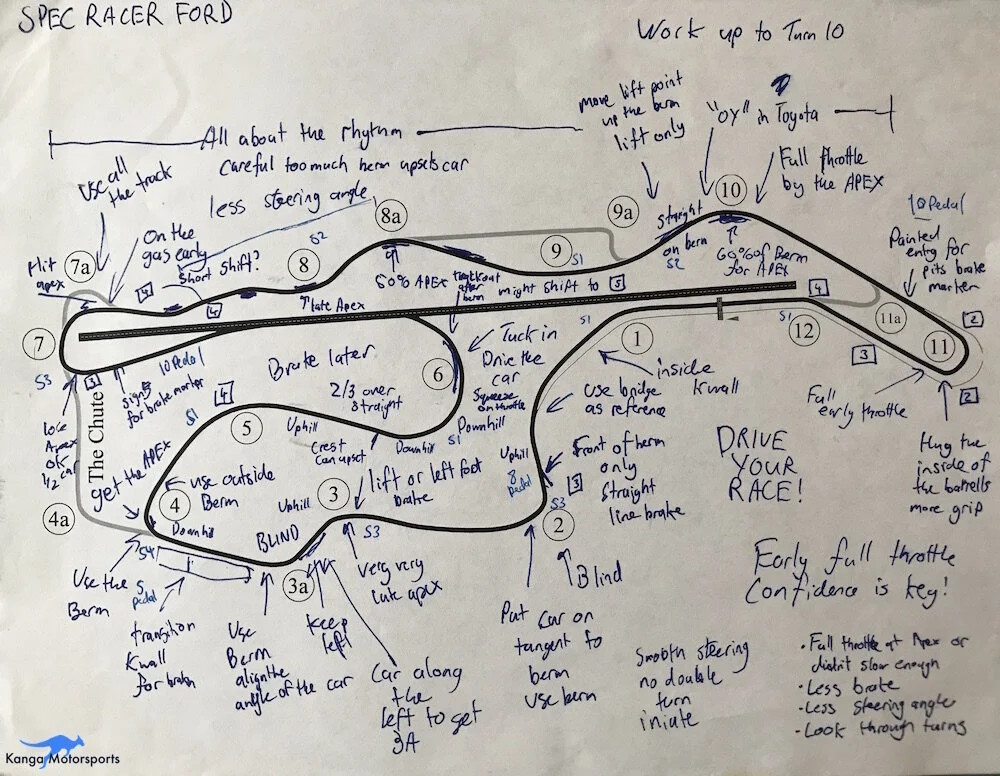 SPEC RACER FORD
Work up to Turn 10
move lift point
up the berm
lift only
"OY" in Toyota
All about the rhythm
Careful too much berm upsets car
Use all
the track
less steering angle
Full throttle
by the APEX
8a
9a
10
10 Pedal
On the
gas early
short shift?
S2
straight
on berm
S2
Painted
entry for
pits brake
marker
Hit
apex
7a
8
9
S1
4
4
60% APEX
track out
after
berm
might shift to
5
60% of Berm
for APEX
4
late Apex
11a
2
7
S3
3
10 Pedal
sign 5
for brake marker
Brake later
6
Tuck in
Drive the
car
Squeeze
on throttle
Downhill
S1
1
S1
12
3
11
2
inside
Kwall
Use bridge
as reference
Full
early throttle
2/3 over
straight
4
S1
5
Uphill
Crest
Can upset
Downhill
S1
Uphill
8
pedal
late
Apex
OK
1/2 car
The Chute
get the APEX
use outside
Berm
4
4a
Downhill
S4
Uphill
BLIND
3
lift or left foot
brake
S3
Front of berm
only
Straight
line brake
3
S3
2
DRIVE
YOUR
RACE!
Hug the
inside of
the barrells
more grip
Use the
Berm
5
pedal
3a
very very
late apex
Blind
Early full throttle
Confidence is key!
transition
Kwall
for brake
Use
Berm
align the
angle of the car
keep
left
Car along
the
left to get
3A
Put car on
tangent to
berm
use berm
Smooth steering
no double
turn
iniate
• Full throttle at Apex or
didn't slow enough
• Less brake
• Less steering angle
• Look through turns
Kanga Motorsports